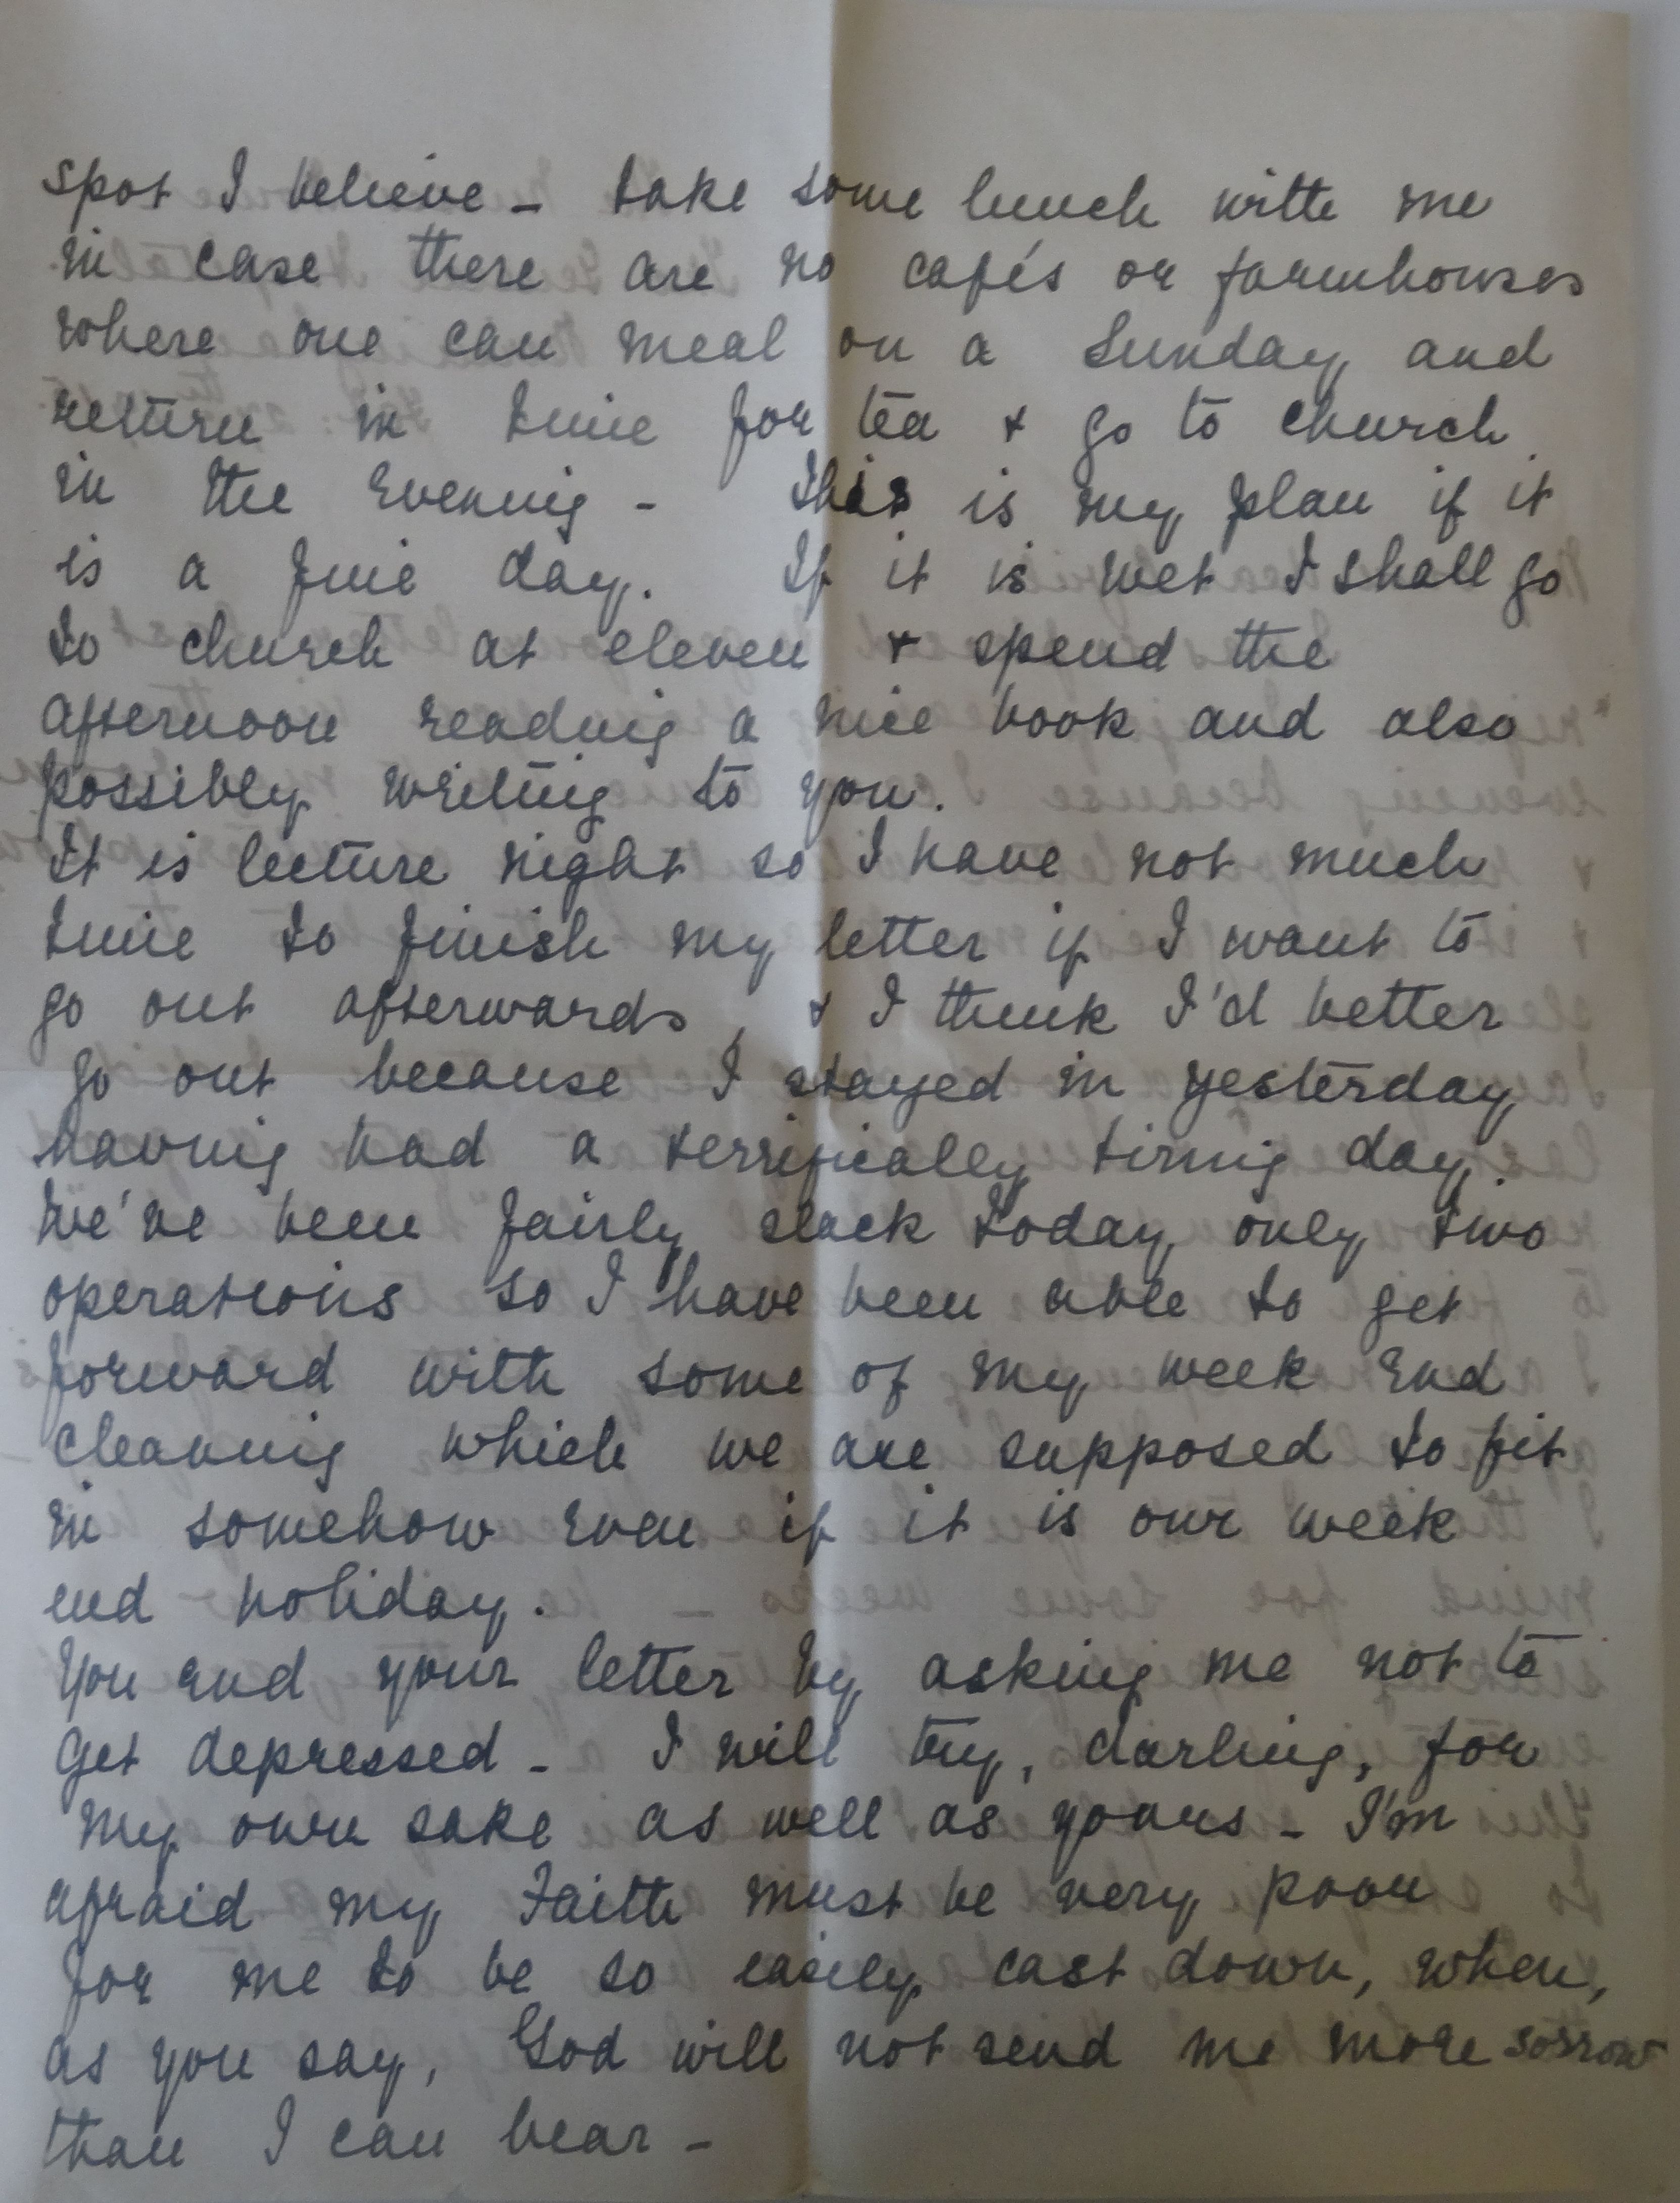 spot I believe - take some lunch with me
in case there are no cafés or farmhouses
where one can meal on a Sunday and
return in time for tea & go to church
in the evening - This is my plan if it
is a fine day. If it is wet I shall go
to church at eleven & spend the
afternoon reading a nice book and also
possibly writing to you.
It is lecture night so I have not much
time to finish my letter if I want to
go out afterwards, & I think I'd better
go out because I stayed in yesterday
having had a terrifically tiring day.
We've been fairly slack today only two
operations so I have been able to get
forward with some of my week end
cleaning which we are supposed to fit
in somehow even if it is our week
end holiday.
You end your letter by asking me not to
get depressed - I will try, darling, for
my own sake as well as yours - I'm
afraid my Faith must be very poor
for me to be so easily cast down, when,
as you say, God will not send me more sorrow
than I can bear -